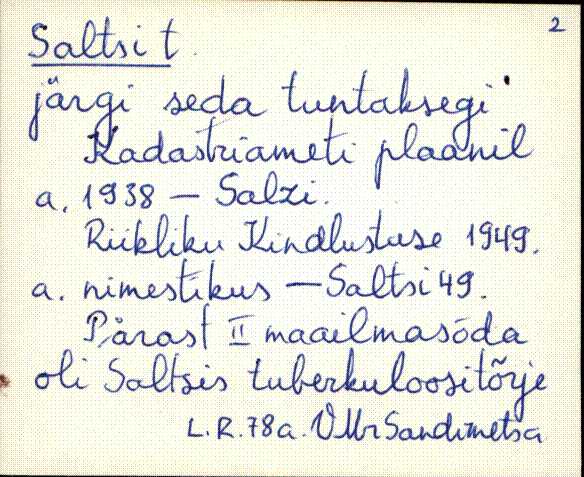 2
Saltsi t.
järgi seda tuntaksegi.
Kadastriameti plaanil
a. 1938 – Salzi.
Riikliku Kindlustuse 1949.
a. nimestikus – Saltsi 49.
Pärast II maailmasõda
oli Saltsis tuberkuloositõrje
L.R. 78 a.